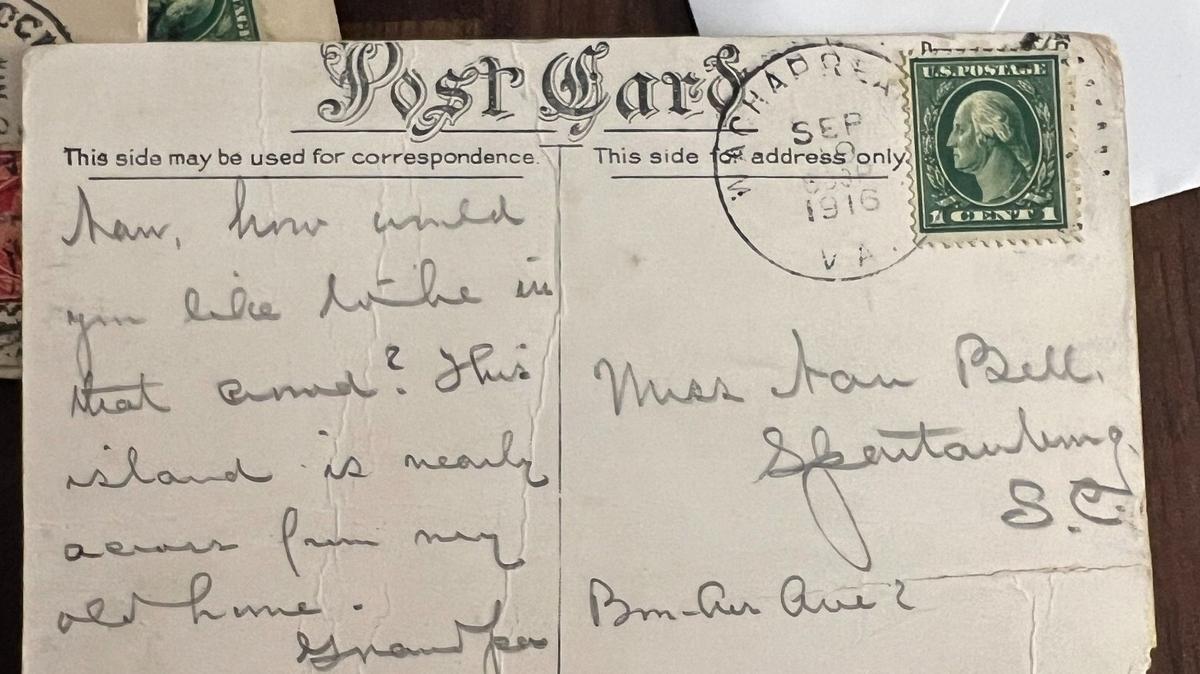 Post Card
This side may be used for correspondence.
This side for address only.
WACHAPREA
SEP
1916
VA.
U.S. POSTAGE
1 CENT 1
Nan, how would
you like to be in
that crowd? This
island is nearly
across from my
old home.
Grandpa
Miss Nan Bell.
Spartanburg,
S.C.
Bon-Air Ave?